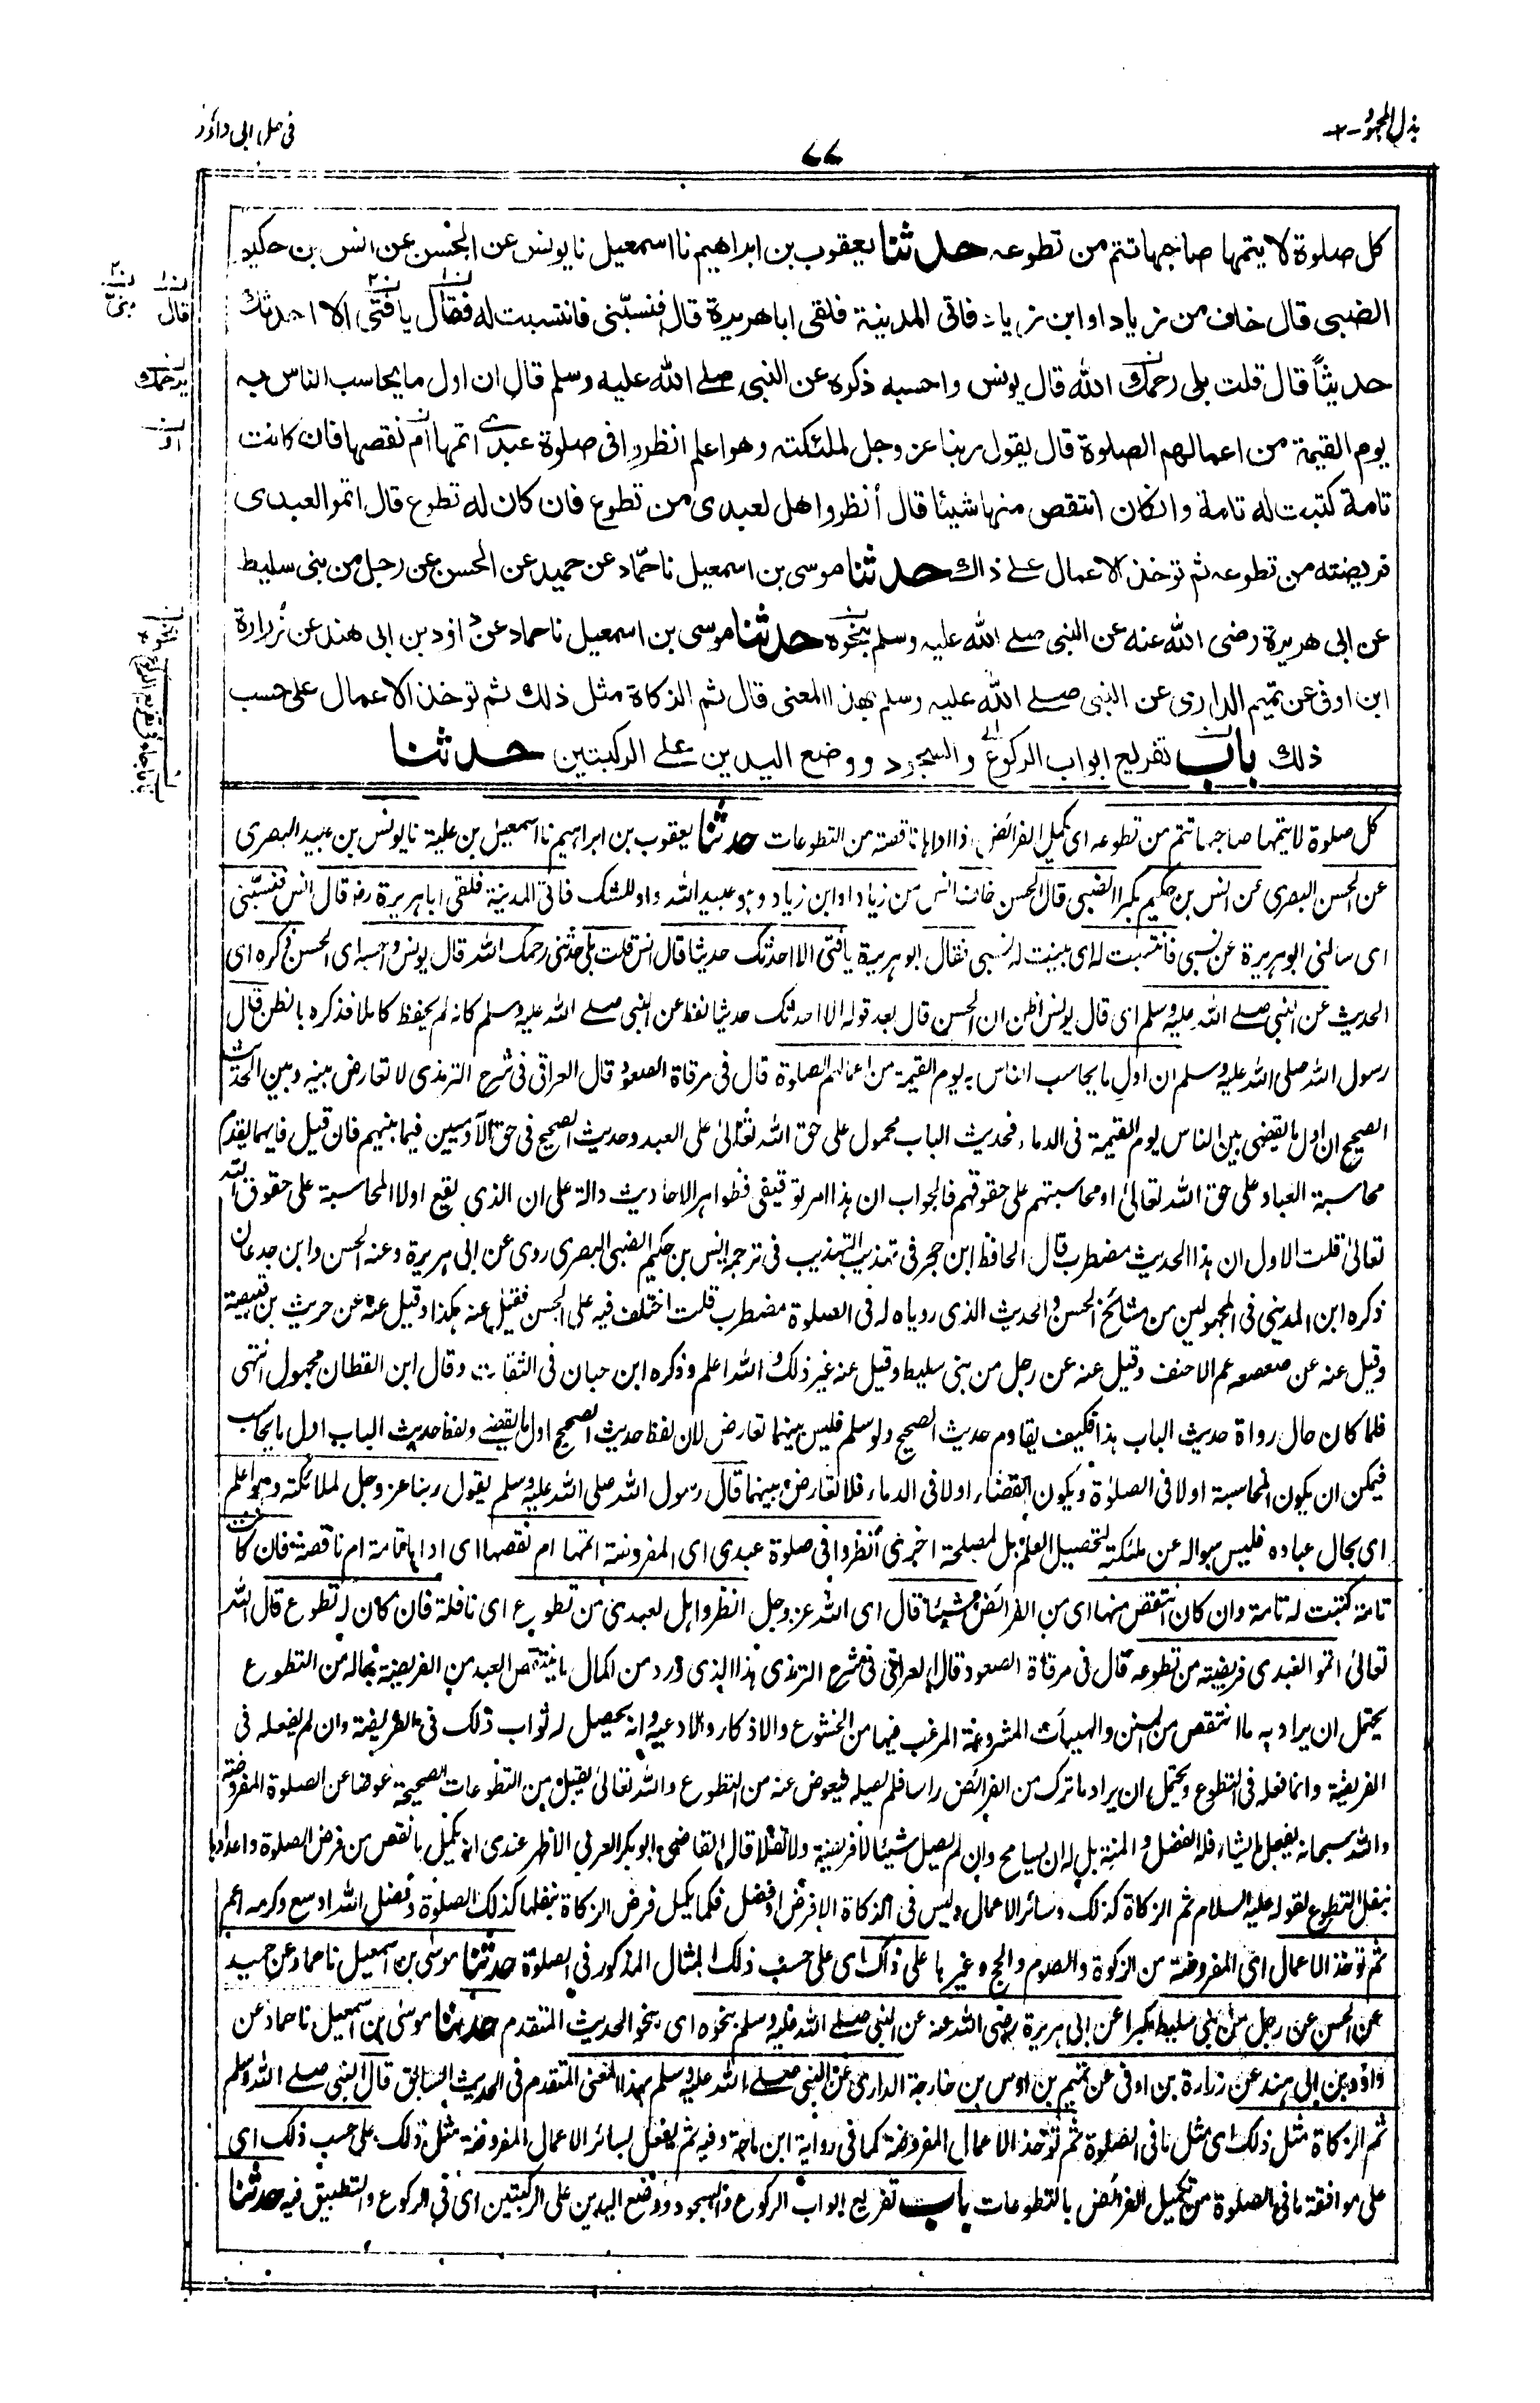 بذل المجهود -٢-
٧٧
فی حل ابی داؤد
كل صلوة لا يتمها صاحبها تتم من تطوعه حدثنا يعقوب بن ابراهيم نا اسمعيل نا يونس عن الحسن عن انس بن حكيم
الضبى قال خاف من زياد او ابن زياد فاتى المدينة فلقى ابا هريرة قال فنسبنى فانتسبت له فقال يا فتى الا احدثك
حديثاً قال قلت بلى رحمك الله قال يونس واحسبه ذكره عن النبى صلے الله عليه وسلم قال ان اول ما يحاسب الناس به
يوم القيمة من اعمالهم الصلوة قال يقول ربنا عز وجل لملئكته وهو اعلم انظروا فى صلوة عبدى اتمها ام نقصها فان كانت
تامة كتبت له تامة وان كان انتقص منها شيئا قال أنظروا هل لعبدى من تطوع فان كان له تطوع قال اتموا لعبدى
فريضته من تطوعه ثم توخذ الاعمال علے ذاك حدثنا موسى بن اسمعيل نا حمّاد عن حميد عن الحسن عن رجل من بنى سليط
عن ابى هريرة رضى الله عنه عن النبى صلے الله عليه وسلم بنحوه حدثنا موسى بن اسمعيل نا حماد عن داؤد بن ابى هند عن زُرارة
ابن اوفى عن تميم الدارى عن النبى صلے الله عليه وسلم بهذا المعنى قال ثم الزكاة مثل ذلك ثم توخذ الاعمال على حسب
ذلك باب تفريع ابواب الركوع والسجود ووضع اليدين علے الركبتين حدثنا
قال
يرحمك
او
كل صلوة لا يتمها صاحبها تتم من تطوعه اى تكمل الفرائض اذا اداها ناقصة من التطوعات حدثنا يعقوب بن ابراهيم نا اسمعيل بن علية نا يونس بن عبيد البصرى
عن الحسن البصرى عن انس بن حكيم مكبرا الضبى قال الحسن خاف انس من زياد او ابن زياد وهو عبيد الله واو للشك فاتى المدينة فلقى ابا هريرة رض قال انس فنسّبنى
اى سالنى ابو هريرة عن نسبى فانتسبت له اى بينت له نسبى فقال ابو هريرة يا فتى الا احدثك حديثا قال انس قلت بلى حدثنى رحمك الله قال يونس واحسبه اى الحسن ذكره اى
الحديث عن النبى صلے الله عليه وسلم اى قال يونس اظن ان الحسن قال بعد قوله الا احدثك حديثا لفظ عن النبى صلے الله عليه وسلم كانه لم يحفظ كاملا فذكره بالظن قال
رسول الله صلى الله عليه وسلم ان اول ما يحاسب الناس به يوم القيمة من اعمالهم الصلوة قال فى مرقاة الصعود قال العراقى فى شرح الترمذى لا تعارض بينه وبين الحديث
الصحيح ان اول ما يقضى بين الناس يوم القيمة فى الدماء فحديث الباب محمول على حق الله تعالىٰ على العبد وحديث الصحيح فى حق الآدميين فيما بينهم فان قيل فايهما يقدم
محاسبة العباد على حق الله تعالىٰ او محاسبتهم على حقوقهم فالجواب ان هذا امر توقيفى فظواهر الاحاديث دالة على ان الذى يقع اولا المحاسبة على حقوق الله
تعالىٰ قلت الاول ان هذا الحديث مضطرب قال الحافظ ابن حجر فى تهذيب التهذيب فى ترجمة انس بن حكيم الضبى البصرى روى عن ابى هريرة وعنه الحسن وابن جدعان
ذكره ابن المدينى فى المجهولين من مشائخ الحسن والحديث الذى روياه له فى الصلوة مضطرب قلت اختلف فيه على الحسن فقيل عنه هكذا وقيل عنه عن حريث بن قبيصة
وقيل عنه عن صعصعه عم الاحنف وقيل عنه عن رجل من بنى سليط وقيل عنه غير ذلك والله اعلم وذكره ابن حبان فى الثقات وقال ابن القطان مجهول انتهى
فلما كان حال رواة حديث الباب هذا فكيف يقاوم حديث الصحيح ولو سلم فليس بينهما تعارض لان لفظ حديث الصحيح اول ما يقضے ولفظ حديث الباب اول ما يحاسب
فيمكن ان يكون المحاسبة اولا فى الصلوة ويكون القضاء اولا فى الدماء فلا تعارض بينهما قال رسول الله صلى الله عليه وسلم يقول ربنا عز وجل لملائكته وهو اعلم
اى بحال عباده فليس سواله عن ملئكته لتحصيل العلم بل لمصلحة اخرى أنظروا فى صلوة عبدى اى المفروضة اتمها ام نقصها اى اداها تامة ام ناقصة فان كانت
تامة كتبت له تامة وان كان انتقص منها اى من الفرائض شيئا قال اى الله عز وجل انظروا هل لعبدى من تطوع اى نافلة فان كان له تطوع قال الله
تعالىٰ اتموا لعبدى فريضته من تطوعه قال فى مرقاة الصعود قال العراقى فى شرح الترمذى هذا الذى ورد من اكمال ما ينتقص العبد من الفريضة بماله من التطوع
يحتمل ان يراد به ما انتقص من السنن والهيأت المشروعة المرغب فيها من الخشوع والاذكار والادعية وانه يحصل له ثواب ذلك فى الفريضة وان لم يفعله فى
الفريضة وانما فعله فى التطوع ويحتمل ان يراد ما ترك من الفرائض راسا فلم يصله فيعوض عنه من التطوع والله تعالىٰ يقبل من التطوعات الصحيحة عوضا عن الصلوة المفروضة
والله سبحانه يفعل ما يشاء فله الفضل والمنة بل له ان يسامح وان لم يصل شيئا لا فريضة ولا نفلا قال القاضى ابو بكر العربى الاظهر عندى انه يكمل ما نقص من فرض الصلوة واعدادها
بنفل التطوع لقوله عليه السلام ثم الزكاة كذلك وسائر الاعمال وليس فى الزكاة الا فرض او فضل فكما يكمل فرض الزكاة بنفلها كذلك الصلوة وفضل الله اوسع وكرمه اعم
ثم توخذ الاعمال اى المفروضة من الزكوة والصوم والحج وغيرها على ذاك اى على حسب ذلك المثال المذكور فى الصلوة حدثنا موسى بن اسمعيل نا حماد عن حميد
عن الحسن عن رجل من بنى سليط مكبرا عن ابى هريرة رضى الله عنه عن النبى صلے الله عليه وسلم بنحوه اى بنحو الحديث المتقدم حدثنا موسى بن اسمعيل نا حماد عن
داؤد بن ابى هند عن زرارة بن اوفى عن تميم بن اوس بن خارجة الدارى عن النبى صلے الله عليه وسلم بهذا المعنى المتقدم فى الحديث السابق قال النبى صلے الله وسلم
ثم الزكاة مثل ذلك اى مثل ما فى الصلوة ثم توخذ الاعمال المفروضة كما فى رواية ابن ماجة وفيه ثم يفعل بسائر الاعمال المفروضة مثل ذلك على حسب ذلك اى
على موافقة ما فى الصلوة من تكميل الفرائض بالتطوعات باب تفريع ابواب الركوع والسجود ووضع اليدين على الركبتين اى فى الركوع والتطبيق فيه حدثنا